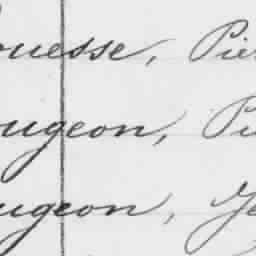 ouesse, Pie
ugeon, Pi
ugeon, Je